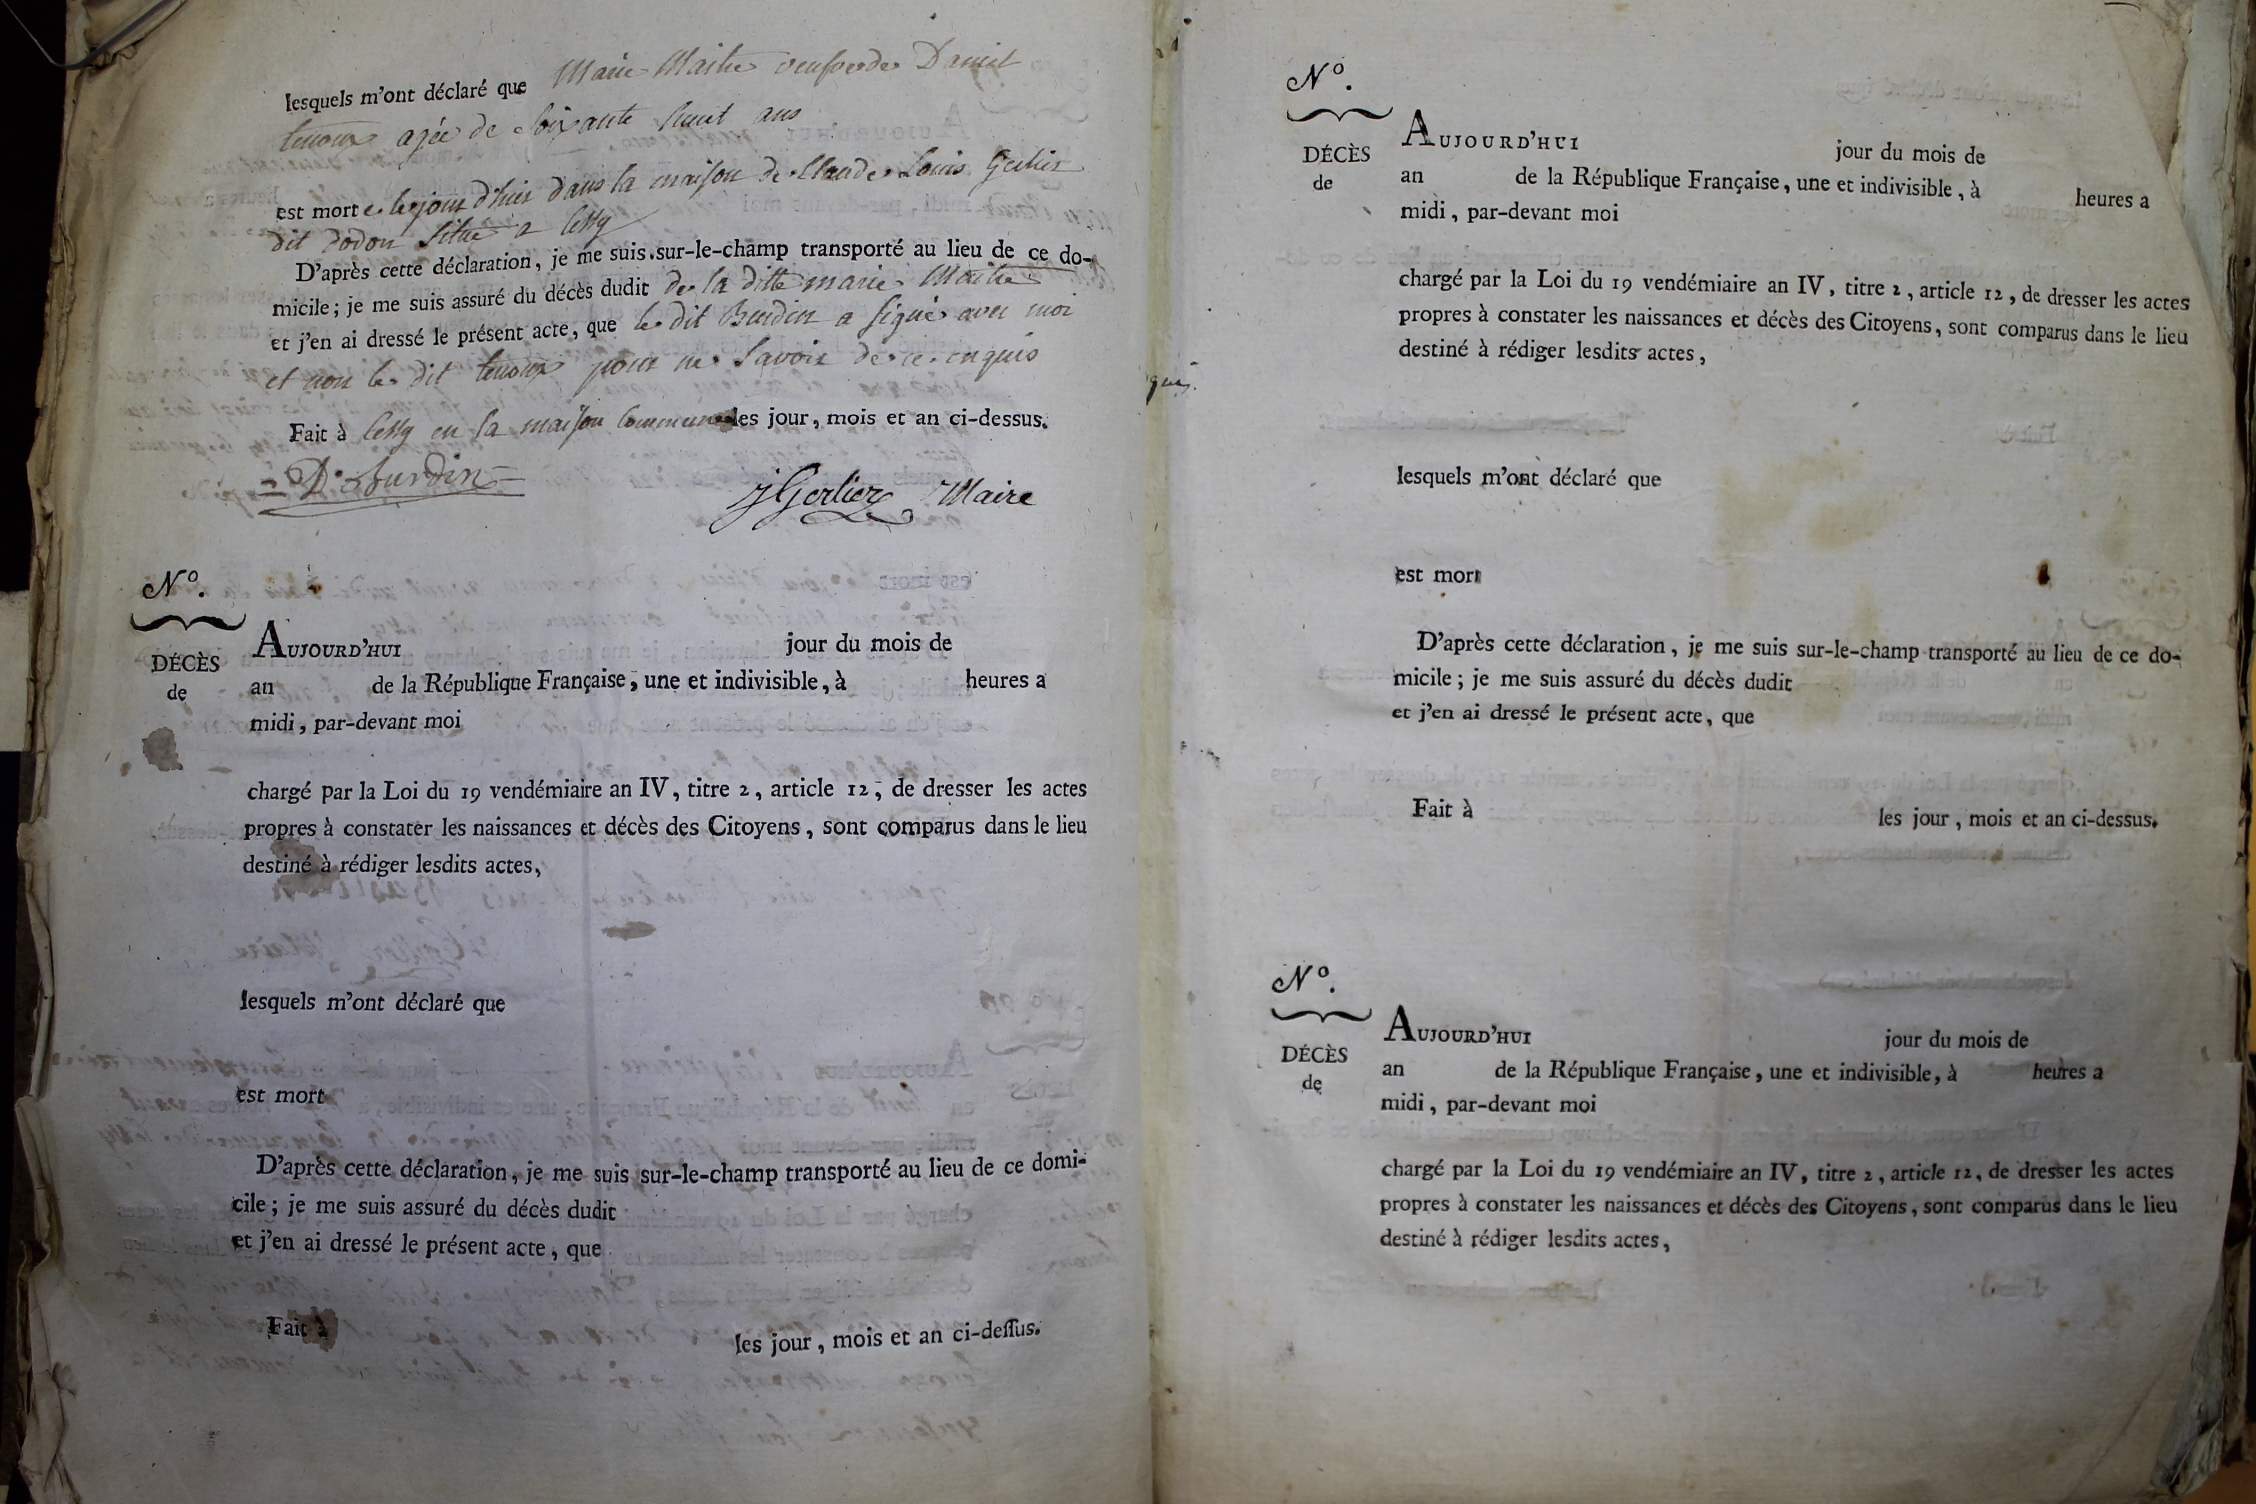 lesquels m'ont déclaré que Marie Maitre veufve de Daniel
tenoux agée de Soixante huit ans
est morte le jour d'hier dans la maison de Claude Louis Gerlier
dit dodon située a Cessy
D'après cette déclaration, je me suis sur-le-champ transporté au lieu de ce do-
micile; je me suis assuré du décès dudit de la ditte marie Maitre
et j'en ai dressé le présent acte, que le dit Burdin a signé avec moi
et non le dit tenoux pour ne savoir de ce enquis
Fait à Cessy en la maison Commune les jour, mois et an ci-dessus.
D. Burdin
J Gerlier Maire
N°.
DÉCÈS
de
AUJOURD'HUI jour du mois de
an de la République Française, une et indivisible, à heures a
midi, par-devant moi
chargé par la Loi du 19 vendémiaire an IV, titre 2, article 12, de dresser les actes
propres à constater les naissances et décès des Citoyens, sont comparus dans le lieu
destiné à rédiger lesdits actes,
lesquels m'ont déclaré que
est mort
D'après cette déclaration, je me suis sur-le-champ transporté au lieu de ce domi-
cile; je me suis assuré du décès dudit
et j'en ai dressé le présent acte, que
Fait à les jour, mois et an ci-deſſus.
N°.
DÉCÈS
de
AUJOURD'HUI jour du mois de
an de la République Française, une et indivisible, à heures a
midi, par-devant moi
chargé par la Loi du 19 vendémiaire an IV, titre 2, article 12, de dresser les actes
propres à constater les naissances et décès des Citoyens, sont comparus dans le lieu
destiné à rédiger lesdits actes,
lesquels m'ont déclaré que
est mort
D'après cette déclaration, je me suis sur-le-champ transporté au lieu de ce do-
micile; je me suis assuré du décès dudit
et j'en ai dressé le présent acte, que
Fait à les jour, mois et an ci-dessus.
N°.
DÉCÈS
de
AUJOURD'HUI jour du mois de
an de la République Française, une et indivisible, à heures a
midi, par-devant moi
chargé par la Loi du 19 vendémiaire an IV, titre 2, article 12, de dresser les actes
propres à constater les naissances et décès des Citoyens, sont comparus dans le lieu
destiné à rédiger lesdits actes,